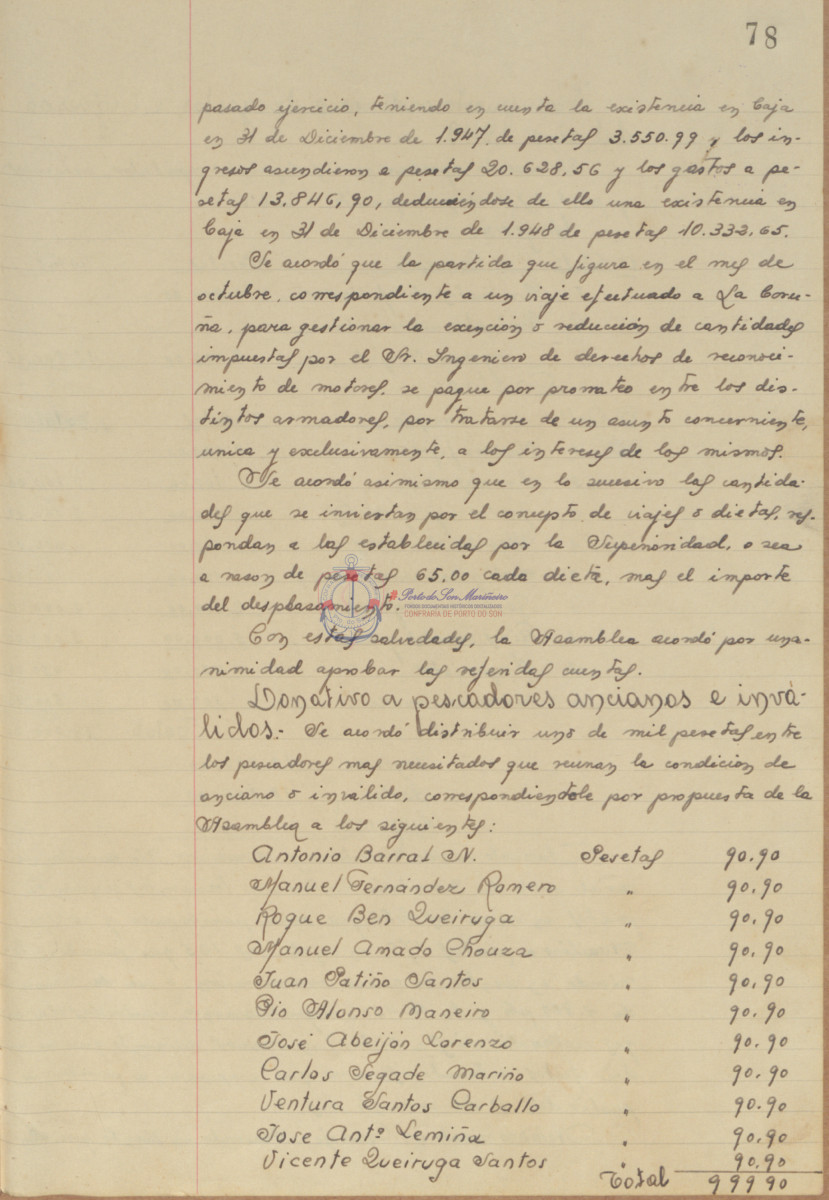 78
pasado ejercicio, teniendo en cuenta la existencia en Caja
en 31 de Diciembre de 1.947, de pesetas 3.550.99 y los in-
gresos ascendieron a pesetas 20.628,56 y los gastos a pe-
setas 13.846,90, deduciéndose de ello una existencia en
Caja en 31 de Diciembre de 1.948 de pesetas 10.332,65.
Se acordó que la partida que figura en el mes de
octubre, correspondiente a un viaje efectuado a La Coru-
ña, para gestionar la exención o reducción de cantidades
impuestas por el Sr. Ingeniero de derechos de reconoci-
miento de motores, se pague por prorrateo entre los dis-
tintos armadores, por tratarse de un asunto concerniente,
unica y exclusivamente, a los intereses de los mismos.
Se acordó asimismo que en lo sucesivo las cantida-
des que se inviertan por el concepto de viajes o dietas, res-
pondan a las establecidas por la Superioridad, o sea
a rason de pesetas 65,00 cada dieta, mas el importe
del desplasamiento.
Porto do Son Mariñeiro
FONDOS DOCUMENTAIS HISTÓRICOS DIXITALIZADOS
CONFRARÍA DE PORTO DO SON
Con estas salvedades, la Asamblea acordó por una-
nimidad aprobar las referidas cuentas.
Donativo a pescadores ancianos e invá-
lidos.- Se acordó distribuir uno de mil pesetas entre
los pescadores mas necesitados que reunan la condición de
anciano o inválido, correspondiendole por propuesta de la
Asamblea a los siguientes:
Antonio Barral N. Pesetas 90.90
Manuel Fernández Romero " 90,90
Roque Ben Queiruga " 90,90
Manuel Amado Chouza " 90,90
Juan Patiño Santos " 90,90
Pio Alonso Maneiro " 90,90
José Abeijón Lorenzo " 90,90
Carlos Segade Mariño " 90.90
Ventura Santos Carballo " 90.90
Jose Antº Lemiña " 90,90
Vicente Queiruga Santos " 90,90
Total 999 90